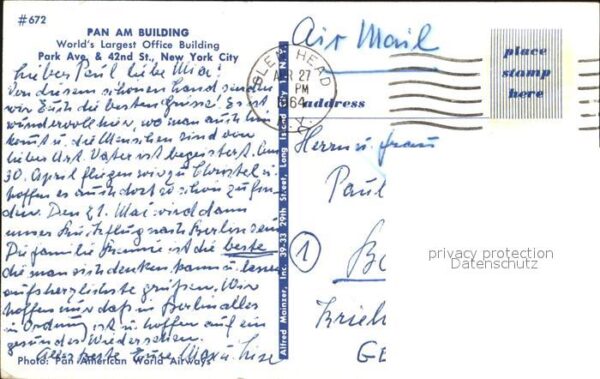 #672
PAN AM BUILDING
World's Largest Office Building
Park Ave. & 42nd St., New York City
Lieber Paul, liebe Mia!
Von diesem schönen Land senden
wir Euch die besten Grüsse. Es ist
wundervoll hier, wo man auch hin
kommt u. die Menschen sind von
lieber Art. Vater ist begeistert. Am
30. April fliegen wir zu Christel u.
hoffen es auch dort so schön zu fin-
den. Den 21. Mai wird dann
unser Rückflug nach Berlin sein
Die Familie ist die beste
die man sich denken kann u. lassen
aufs herzlichste grüßen. Wir
hoffen nur daß in Berlin alles
in Ordnung ist u. hoffen auf ein
gesundes Wiedersehen.
Alles beste Eure Max u. Lise
Photo: Pan American World Airways
Alfred Mainzer, Inc. 39-33 29th Street, Long Island City 1, N.Y.
GLEN HEAD
APR 27
PM
1964
N.Y.
Air Mail
place
stamp
here
address
Herrn u. Frau
Paul
1
Be
Krieh
GE
privacy protection
Datenschutz